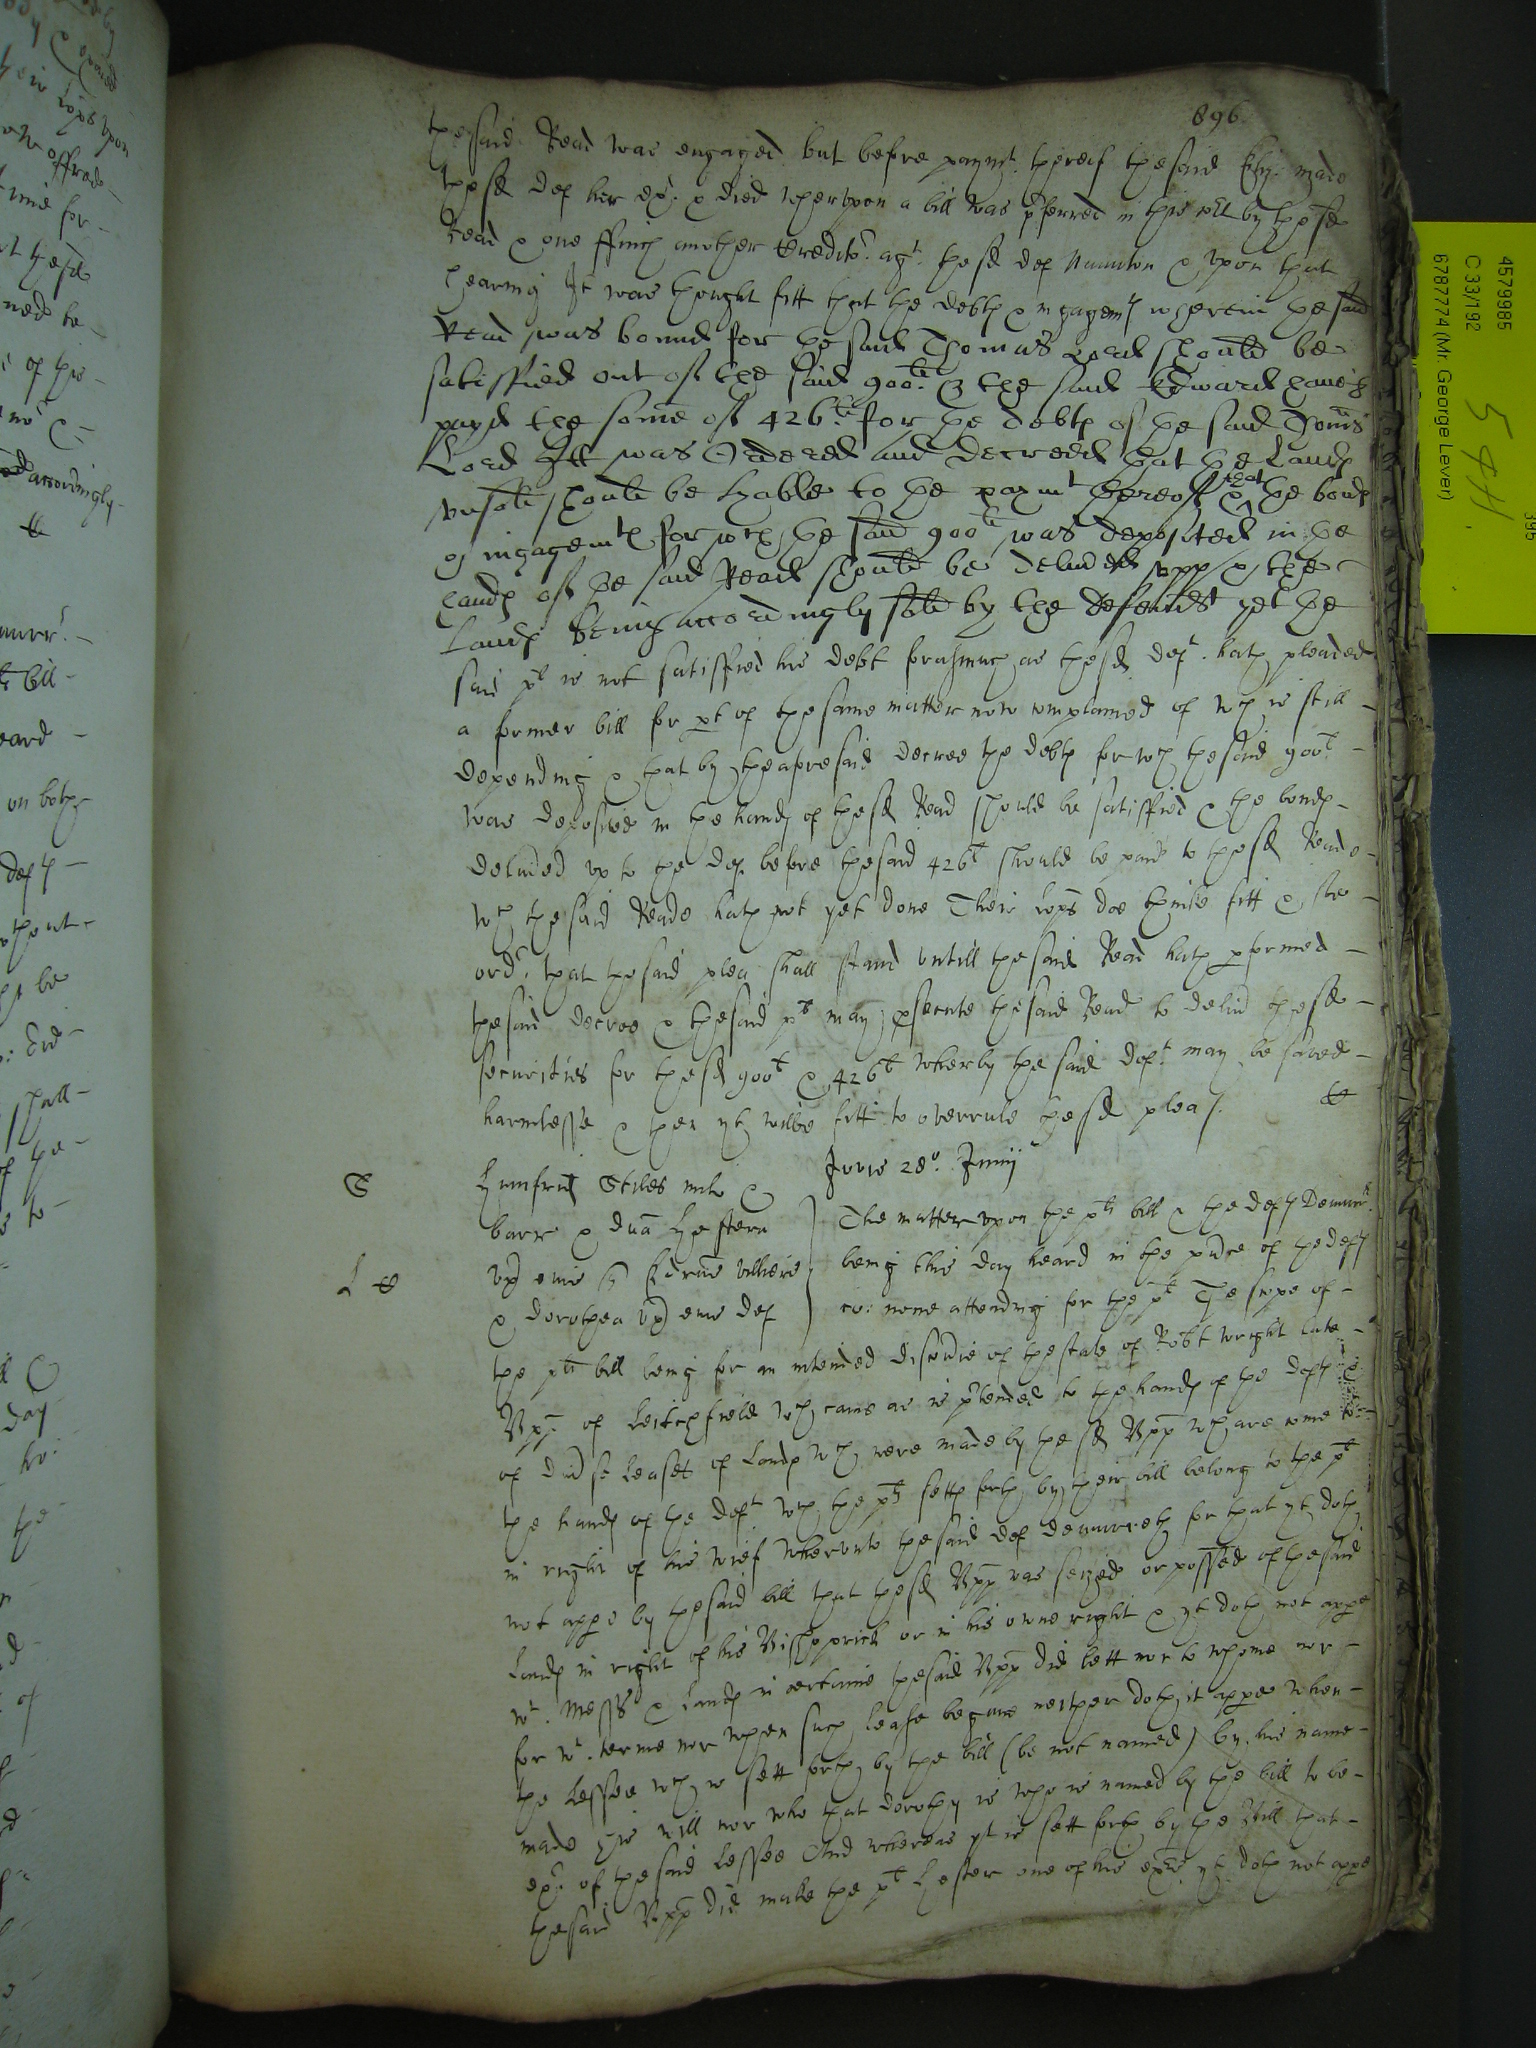 896
the said Read was engaged but before paymt thereof the said made
the sd def her exr & died wherupon a bill was pferred in this Co:rt by the sd
Read & one ffinch another Creditor agt the sd def Naunton & upon that
hearing It was thought fitt that the debts & ingagemts wherein the said
Read was bound for the said Thomas Lord should be
satisffied out of the said 900li & the said Edward haueing
payd the some of 426li for the debts of the said Thoms
Lord Itt was Ordered and decreed that the Lands
unsold should be lyable to the paymt thereof & that the bonds
of ingagemts for wch the said 900li was deposited in the
hands of the said Read should be deliuered upp & the
Lands being accordingly sold by the defendt yet the
said pt is not satisffied his debt forasmuch as the sd deft hath pleaded
a former bill for pt of the same matter now complained of wch is still
depending & that by the aforesaid decree the debts for wch the said 900l
was deposited in the hands of the sd Read should be satisffied & the bonds
deliuded up to the def before the said 426l should be paid to the sd Reade
wch the said Reade hath not yet done Their Lopps doe thinke fitt & soe
ordr that the said plea shall stand untill the said Read hath pformed
the said decree & the said pt may psecute the said Read to deliud the sd
securities for the sd 900l & 426l wherby the said deft may be saued
harmlesse & then yt wilbe fitt to overrule the sd plea /.
Jovis 28o Junij
S
L
Humfrid Stiles miles &
barr & dna Hester
ux eius Villiers
& Dorothea ux eius def
The matter upon the pts bill & the defts Demurrr
being this day heard in the psnce of the defts
co: none attending for the pt The scope of
the pts bill being for an intended discouie of the state of Robt Wright late
Bpp of Leitchfield wch came as is ptended to the hands of the defts &
of diuse leases of Lands wch were made by the sd Bpp wch are come to
the hands of the deft wch the pts setts forth by their bill belong to the pt
in right of his wief wherunto the said def demurreth for that yt doth
not appe by the said bill that the sd Bpp was seized or possed of the said
Lands in right of his Bishoprick or in his owne right & yt doth not appe
wt Messs & Lands in certaine the said Bpp did lett nor to whome nor
for wt terme nor when such lease begane neither doth it appe when
the lessee wch is sett forth by the bill (be not named) by his name
made his will nor who that Dorothy is who is named by the bill to be
exr of the said lessee And whereas yt is sett forth by the bill that
the said Bpp did make the pt Hester one of his exrs yt doth not appe
4579985
C 33/192
6787774 (Mr. George Lever)
395